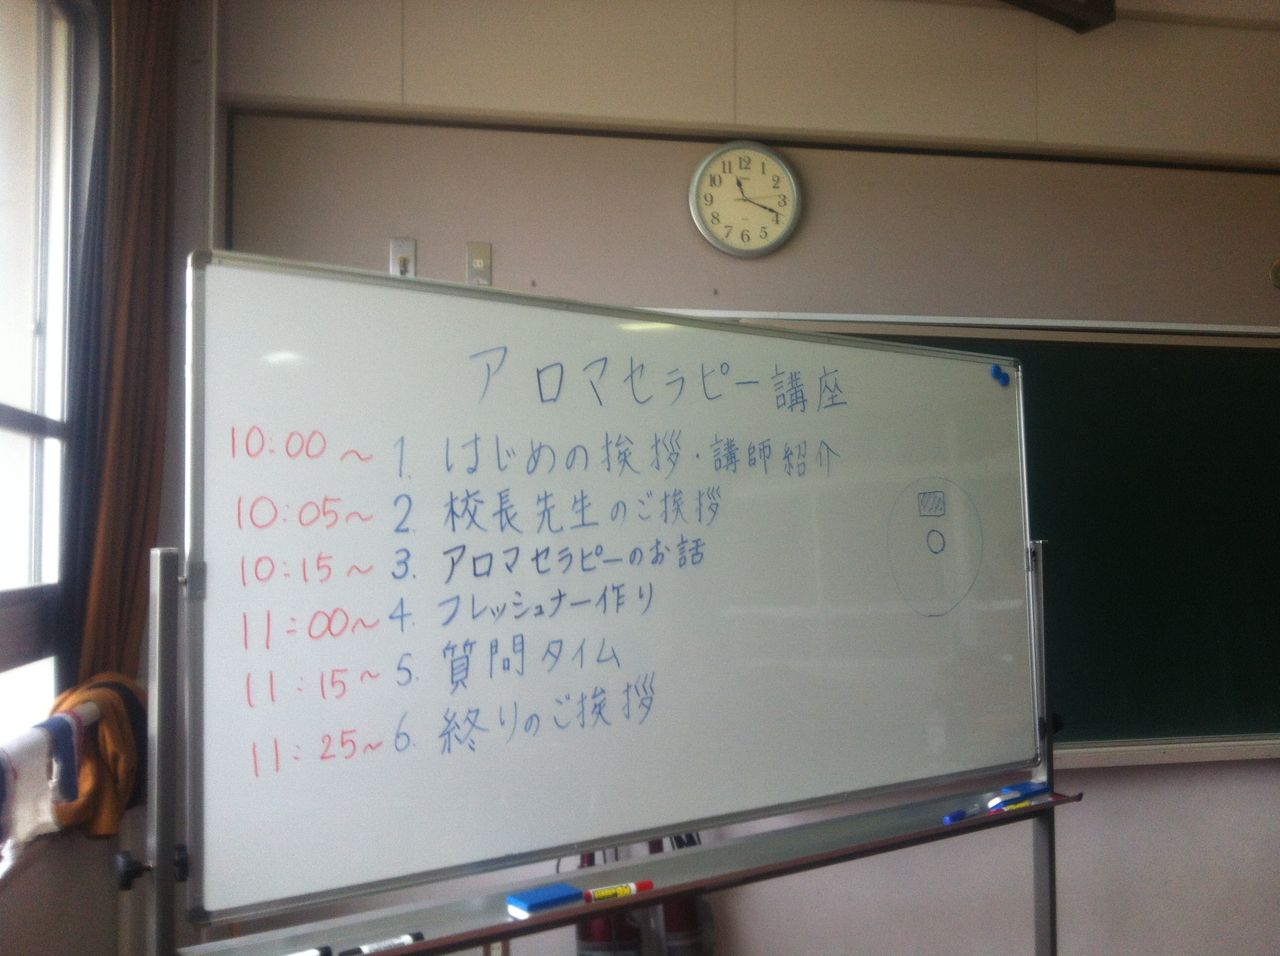 11 12 1
10 2
9 3
8 4
7 6 5
アロマセラピー講座
10:00～ 1. はじめの挨拶・講師紹介
10:05～ 2. 校長先生のご挨拶
10:15～ 3. アロマセラピーのお話
11:00～ 4. フレッシュナー作り
11:15～ 5. 質問タイム
11:25～ 6. 終りのご挨拶